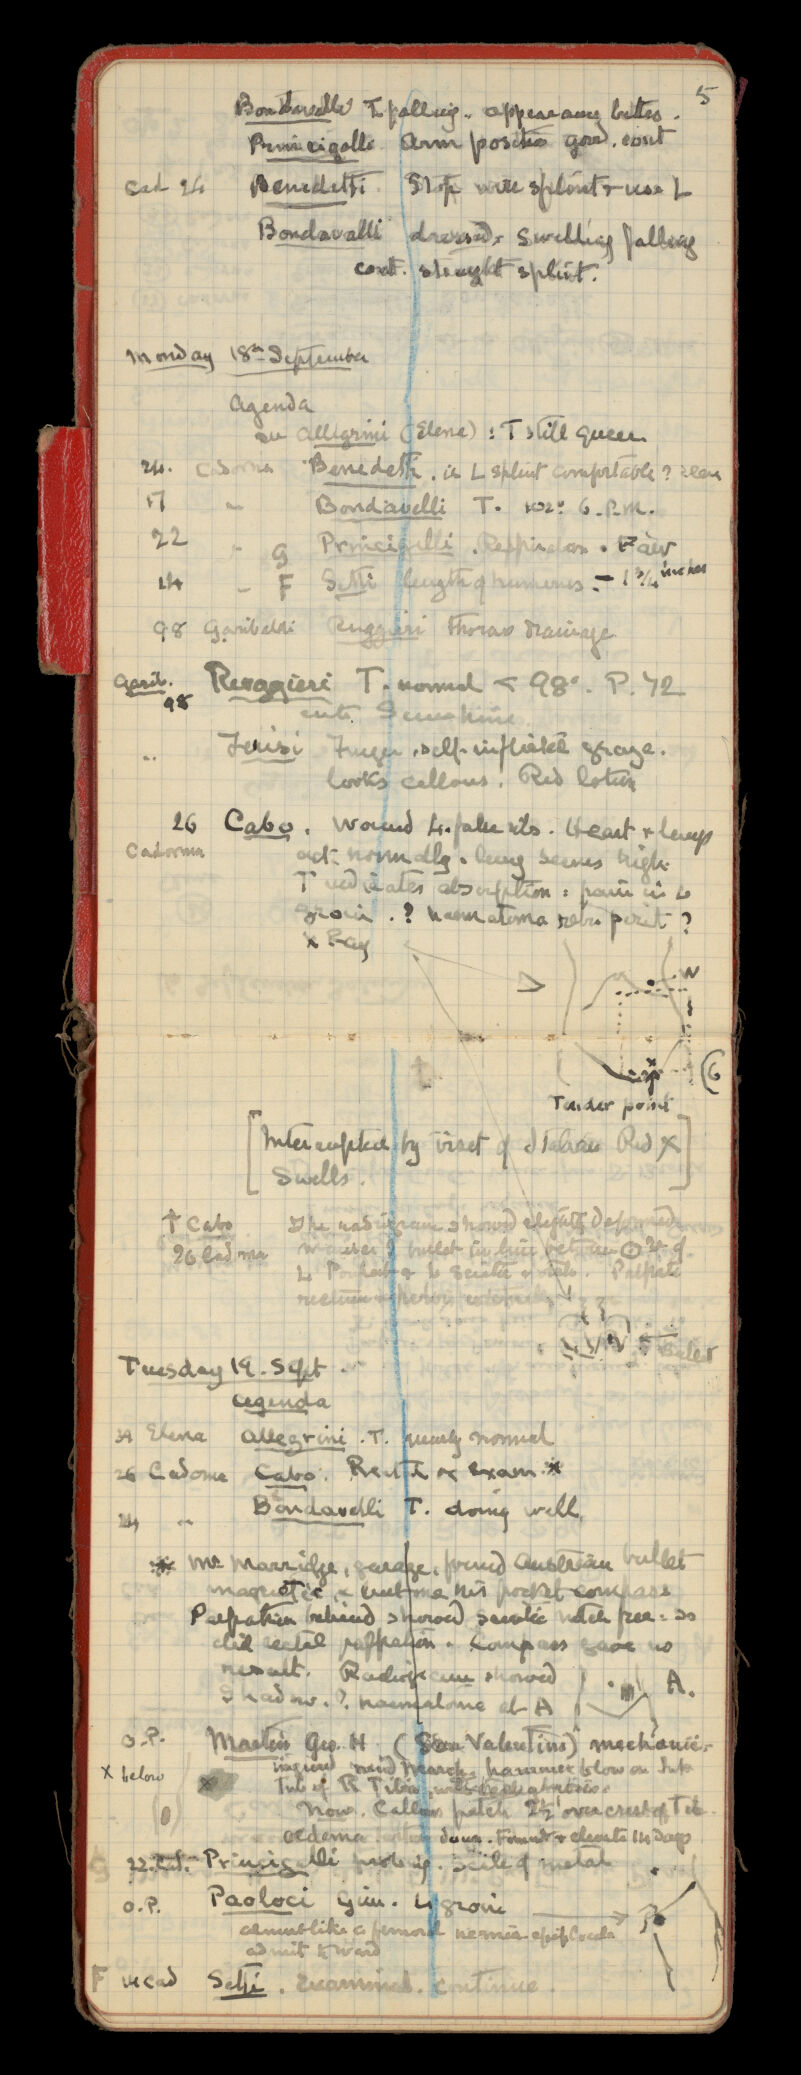 5
Bondavalli T falling. appearance better.
Princigalli Arm position good. cont
Cad 24 Benedetti. Stop wire splint & use L
Bondavalli dressed. Swelling falling
cont. straight splint.
Monday 18th September
Agenda
Allegrini (Elena) : T still queer.
24. Cadorna Benedetti. is L splint comfortable?
17 " Bondavelli T. 102° 6. P.M.
22 " G Princigelli. Respiration. Fair
14 " F Setti length of humerus = - 1 3/4 inches
98 Garibaldi Ruggieri thorax drainage
Garib. 98 Ruggieri T. normal < 98°. P. 72
" Finger. self-inflicted graze.
looks callous. Red lotion
26 Cabo. Wound L. false ribs. Heart & lungs
Cadorna act normally. lung seems high.
T indicates absorption : pain in L
groin. ? haematoma retro perit ?
X Ray
W
6
Tender point
[Interrupted by visit of Italian Red X
Swells.]
† Cabo The radiogram showed slightly deformed
26 Cadorna bullet in line between
L & L sciatic notch. Palpate
rectum
Tuesday 19. Sept.
agenda
34 Elena Allegrini. T. nearly normal
26 Cadorna Cabo. Rectal exam. *
14 " Bondavelli T. doing well
* Mr Marridge, garage, found Austrian bullet
magnetic, & lent me his pocket compass
Palpation behind showed sciatic notch free : so
did rectal palpation. Compass gave no
result. Radiogram showed
shadow. ?. haematoma at A
A.
O.P. Martin Geo. H (San Valentino) mechanic.
X below injured mid March. hammer blow on
Tub of R Tibia,
Now. Callous patch 2½" over crest of Tib.
oedema down. Foment & elevate 14 days
22. Cad. Princigelli probing. Scale of metal
O.P. Paoloci Giu. L groin
almost like a femoral hernia epiplocele
admit to ward
F 14 Cad Setti. Examined. continue.